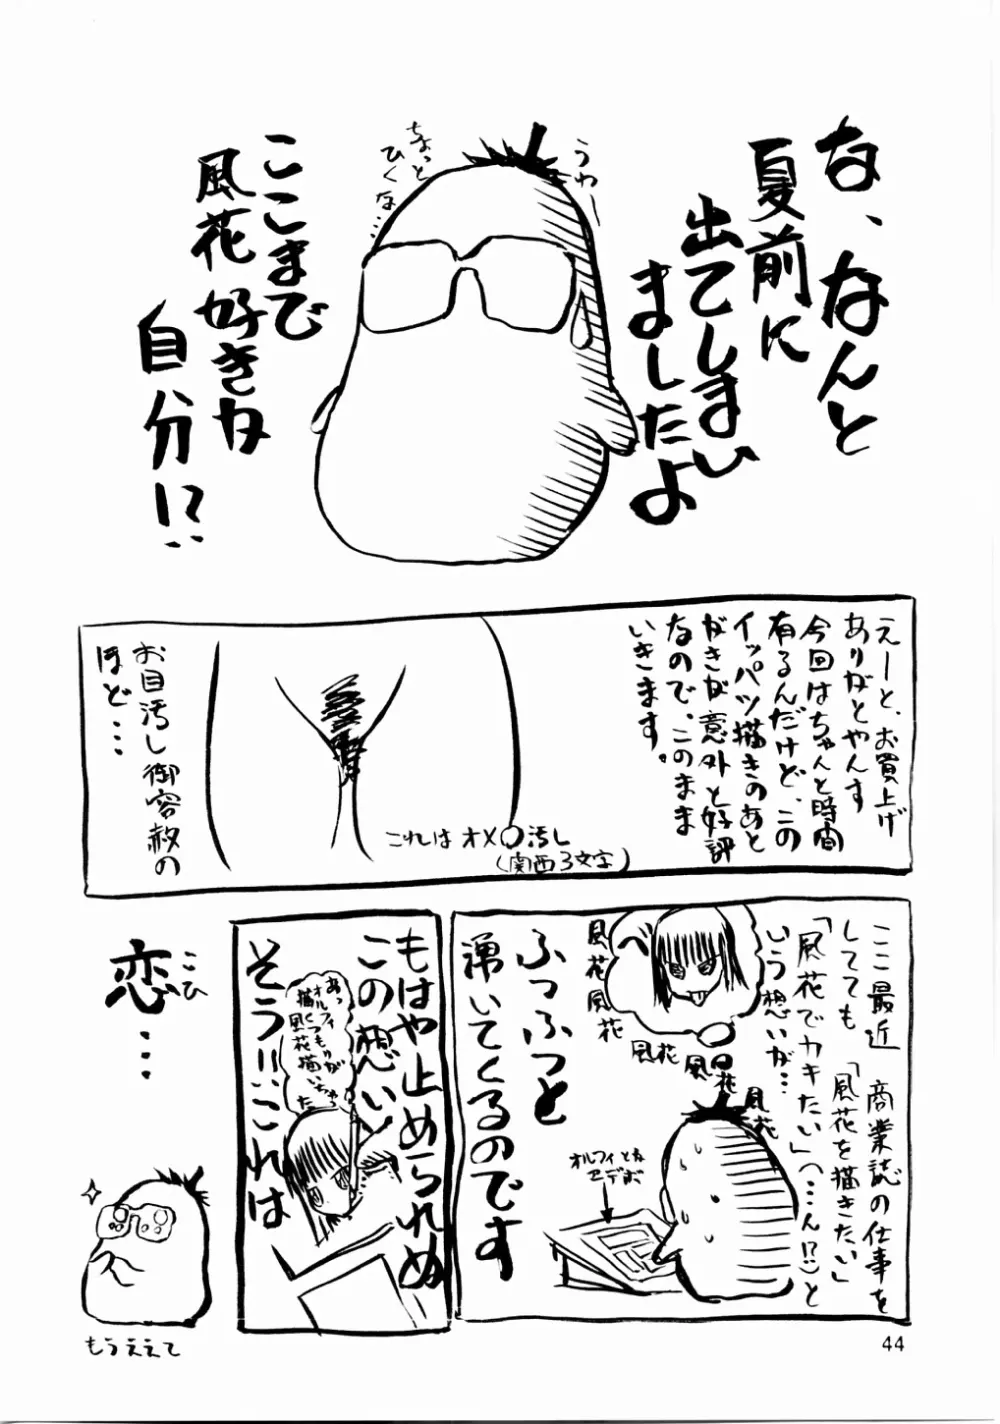 な、なんと
夏前に
出てしまい
ましたよ
うわー
ちょっと
ひくな…
ここまで
風花好きな
自分!?
えーと、お買上げ
ありがとやんす
今回はちゃんと時間
有るんだけど、この
イッパツ描きのあと
がきが意外と好評
なので、このまま
いきます。
これはオメ〇汚し
(関西3文字)
お目汚し御容赦の
ほど…
ここ最近 商業誌の仕事を
してても「風花を描きたい」
「風花でカキたい」(…ん!?)と
いう想いが…
風花
風花
風花
風花
風花
風花
オルフィとな
ふつふつと
湧いてくるのです
もはや止められぬ
この想い
そう!!これは
あっ
オルフィ
描くつもりが
風花描いちゃっ
た
恋…
こひ
もうええて
44